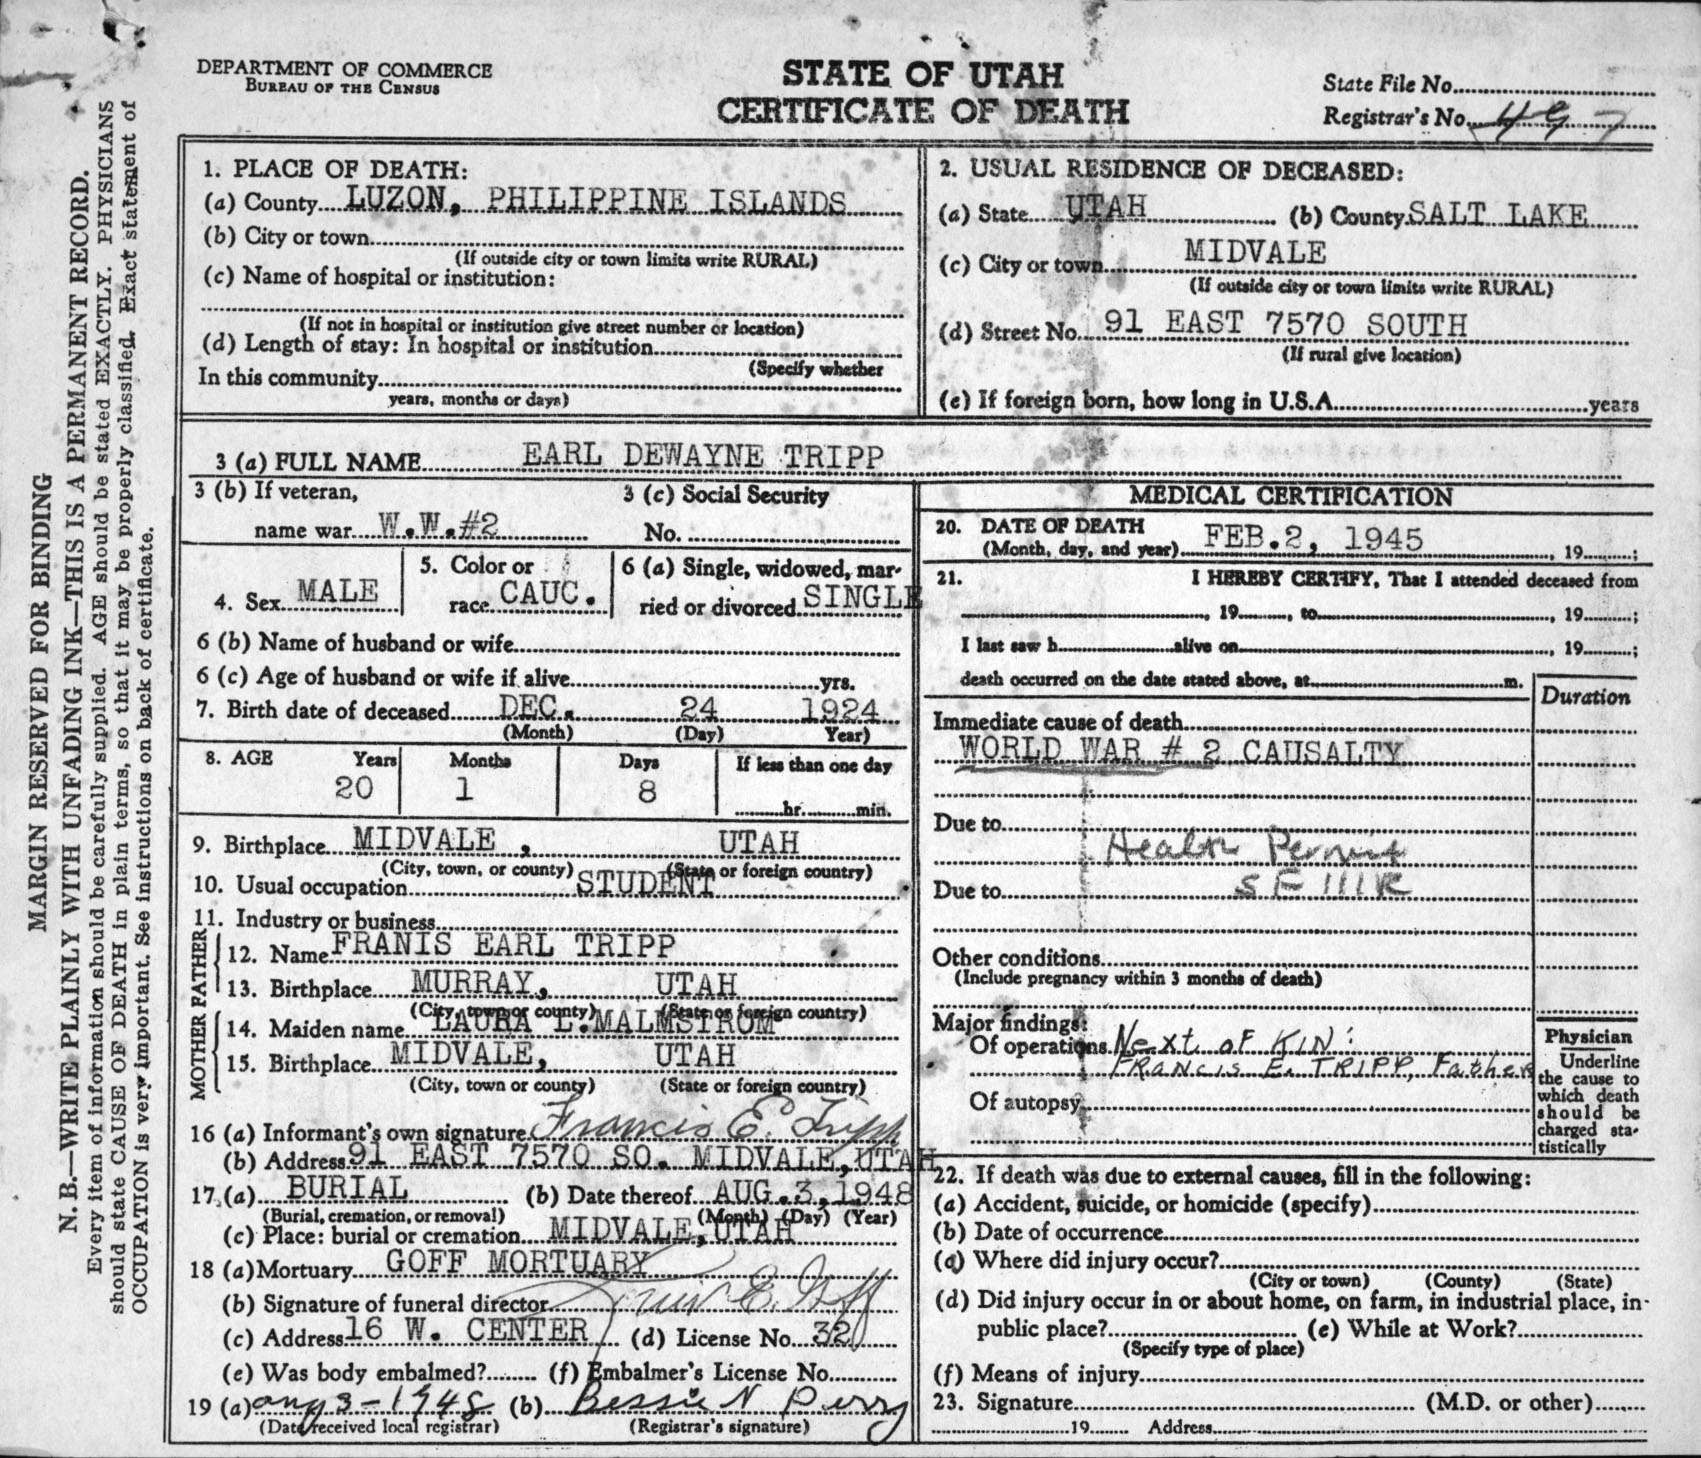 DEPARTMENT OF COMMERCE
BUREAU OF THE CENSUS
STATE OF UTAH
CERTIFICATE OF DEATH
State File No.
Registrar's No. 497
MARGIN RESERVED FOR BINDING
N. B.—WRITE PLAINLY WITH UNFADING INK—THIS IS A PERMANENT RECORD.
Every item of information should be carefully supplied. AGE should be stated EXACTLY. PHYSICIANS
should state CAUSE OF DEATH in plain terms, so that it may be properly classified. Exact statement of
OCCUPATION is very important. See instructions on back of certificate.
1. PLACE OF DEATH:
(a) County LUZON, PHILIPPINE ISLANDS
(b) City or town
(If outside city or town limits write RURAL)
(c) Name of hospital or institution:
(If not in hospital or institution give street number or location)
(d) Length of stay: In hospital or institution
(Specify whether
In this community
years, months or days)
2. USUAL RESIDENCE OF DECEASED:
(a) State UTAH (b) County SALT LAKE
(c) City or town MIDVALE
(If outside city or town limits write RURAL)
(d) Street No. 91 EAST 7570 SOUTH
(If rural give location)
(e) If foreign born, how long in U.S.A. years
3 (a) FULL NAME EARL DEWAYNE TRIPP
3 (b) If veteran,
name war W.W.#2
3 (c) Social Security
No.
4. Sex MALE
5. Color or
race CAUC.
6 (a) Single, widowed, mar-
ried or divorced SINGLE
6 (b) Name of husband or wife
6 (c) Age of husband or wife if alive yrs.
7. Birth date of deceased DEC. 24 1924
(Month) (Day) Year)
8. AGE Years Months Days If less than one day
20 1 8 hr. min.
9. Birthplace MIDVALE , UTAH
(City, town, or county) (State or foreign country)
10. Usual occupation STUDENT
11. Industry or business
FATHER
12. Name FRANIS EARL TRIPP
13. Birthplace MURRAY, UTAH
(City, town or county) (State or foreign country)
MOTHER
14. Maiden name LAURA L.MALMSTROM
15. Birthplace MIDVALE, UTAH
(City, town or county) (State or foreign country)
16 (a) Informant's own signature Francis E. Tripp
(b) Address 91 EAST 7570 SO. MIDVALE,UTAH
17.(a) BURIAL (b) Date thereof AUG.3,1948
(Burial, cremation, or removal) (Month) (Day) (Year)
(c) Place: burial or cremation MIDVALE,UTAH
18 (a) Mortuary GOFF MORTUARY
(b) Signature of funeral director E. Goff
(c) Address 16 W. CENTER (d) License No. 320
(e) Was body embalmed? (f) Embalmer's License No.
19 (a) aug 3-1948 (b) Bessie N Perry
(Date received local registrar) (Registrar's signature)
MEDICAL CERTIFICATION
20. DATE OF DEATH
(Month, day, and year) FEB.2, 1945 , 19 ;
21. I HEREBY CERTIFY, That I attended deceased from
, 19 , to , 19 ;
I last saw h alive on , 19 ;
death occurred on the date stated above, at m.
Duration
Immediate cause of death
WORLD WAR # 2 CAUSALTY
Due to
Health Permit
Due to S F 111R
Other conditions
(Include pregnancy within 3 months of death)
Major findings:
Of operations Next of KIN:
FRANCIS E. TRIPP, Father
Of autopsy
Physician
Underline
the cause to
which death
should be
charged sta-
tistically
22. If death was due to external causes, fill in the following:
(a) Accident, suicide, or homicide (specify)
(b) Date of occurrence
(c) Where did injury occur?
(City or town) (County) (State)
(d) Did injury occur in or about home, on farm, in industrial place, in-
public place? (e) While at Work?
(Specify type of place)
(f) Means of injury
23. Signature (M.D. or other)
19 Address